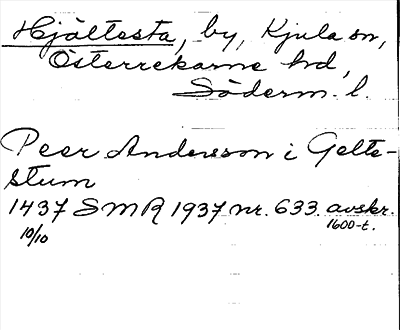 Hjältesta, by, Kjula sn,
Österrekarne hd,
Söderm. l.
Peer Andersson i Gelte-
stum
1437 SMR 1937 nr. 633. avskr.
10/10 1600-t.